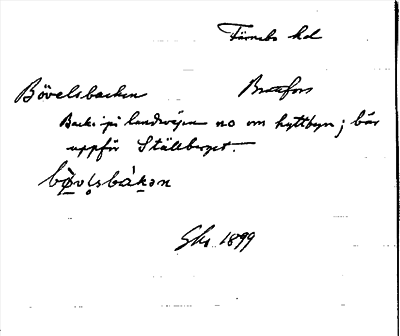 Färnebo hd
Bövelsbacken Brattfors
Backe på landsvägen no om hyttbyn; bär
uppför Ställberget.
bø̀vl̥sbákən
Shs 1899